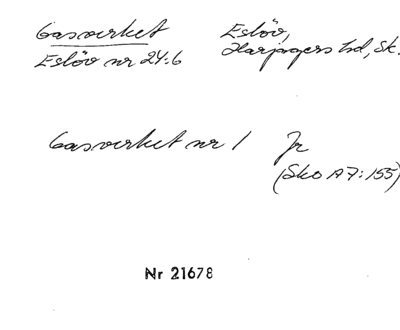 Gasverket
Eslöv,
Eslöv nr 24:6
Harjagers hd, Sk.
Gasverket nr 1
Jr
(Sko A 7:155)
Nr 21678